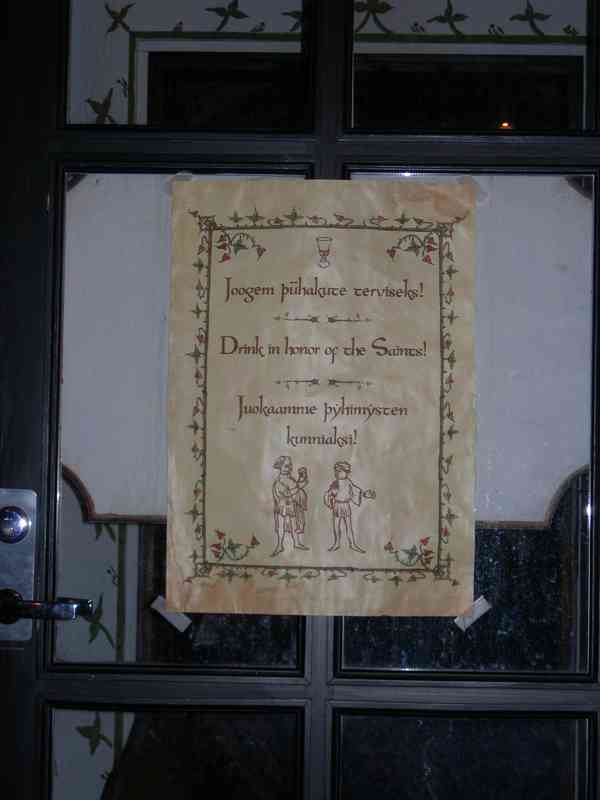 Joogem pühakute terviseks!
Drink in honor of the Saints!
Juokaamme pyhimysten
kunniaksi!